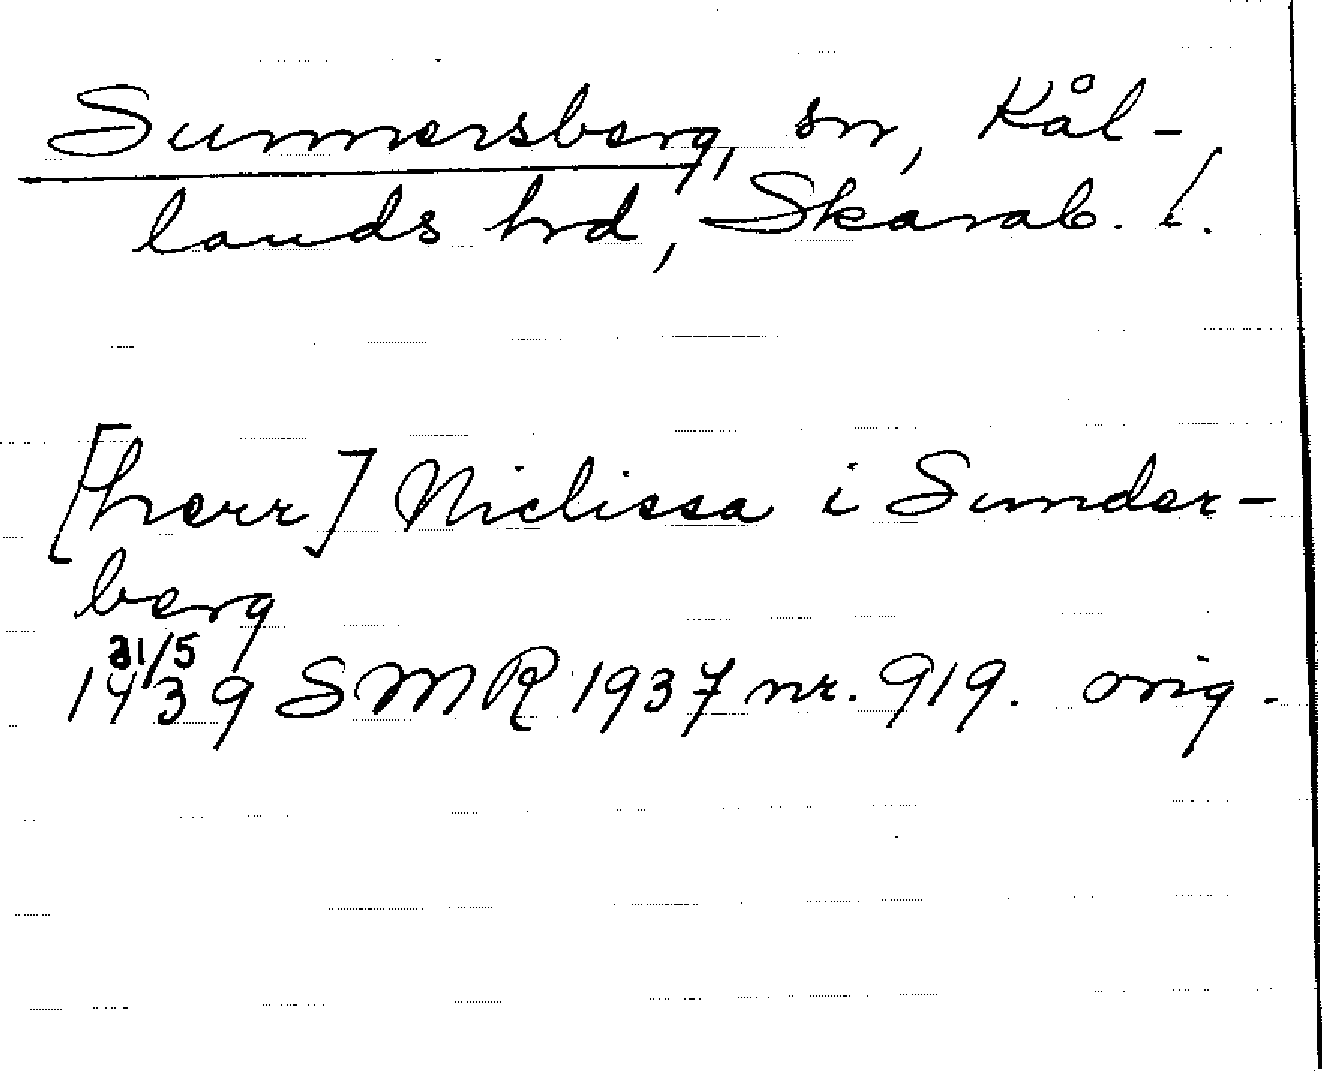 Sunnersberg, sn, Kål-
lands hrd, Skarab. l.
[herr] Niclissa i Sunder-
berg
31/5
1439 SMR 1937 nr. 919. orig.